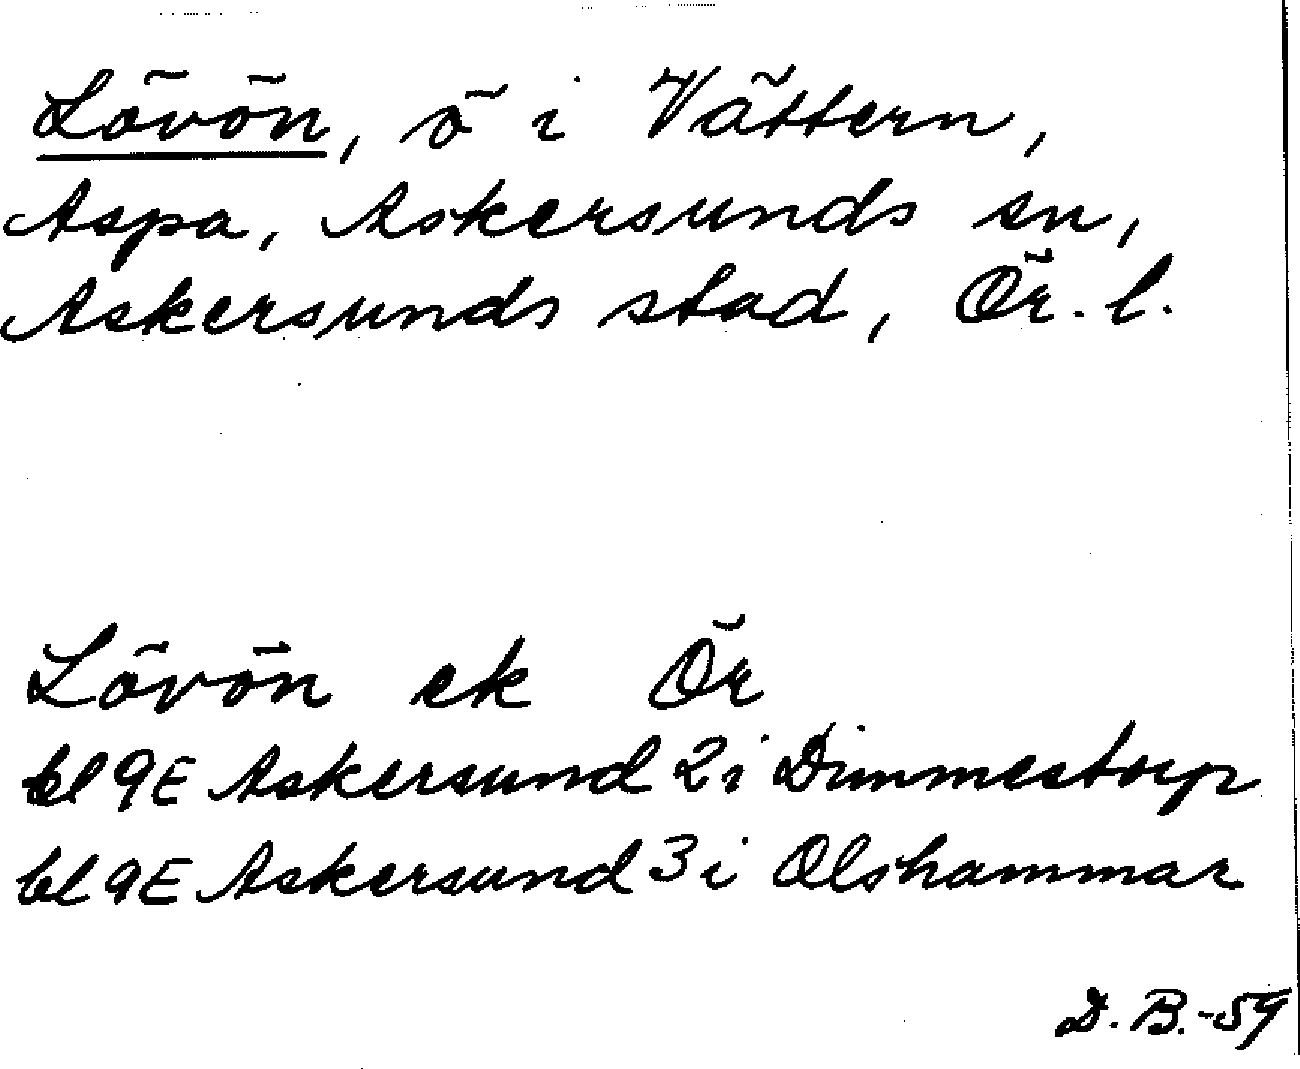 Lövön, ö i Vättern,
Aspa, Askersunds sn,
Askersunds stad, Ör. l.
Lövön ek Ör
bl 9E Askersund 2 i Dimmestorp
bl 9E Askersund 3 i Olshammar
D. B.-59